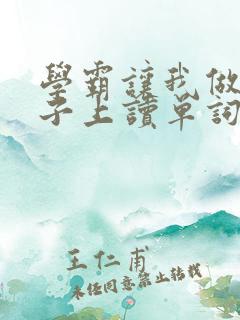 學霸讓我做
子上讀單詞
王仁甫
未經同意禁止轉載